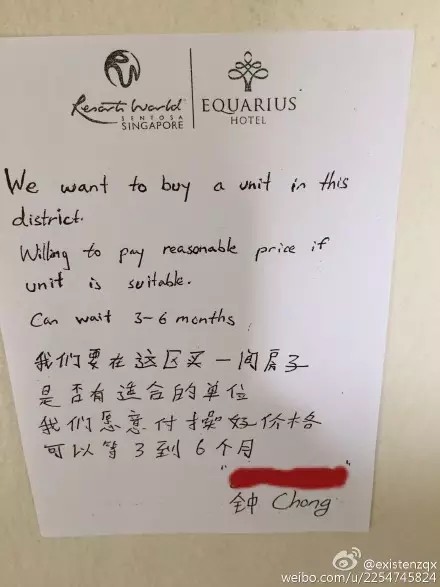 Resorts World
SENTOSA
SINGAPORE
EQUARIUS
HOTEL
We want to buy a unit in this
district.
Willing to pay reasonable price if
unit is suitable.
Can wait 3-6 months
我们要在这区买一间房子
是否有适合的单位
我们愿意付操好价格
可以等3到6个月
钟 Chong
@existenzqx
weibo.com/u/2254745824